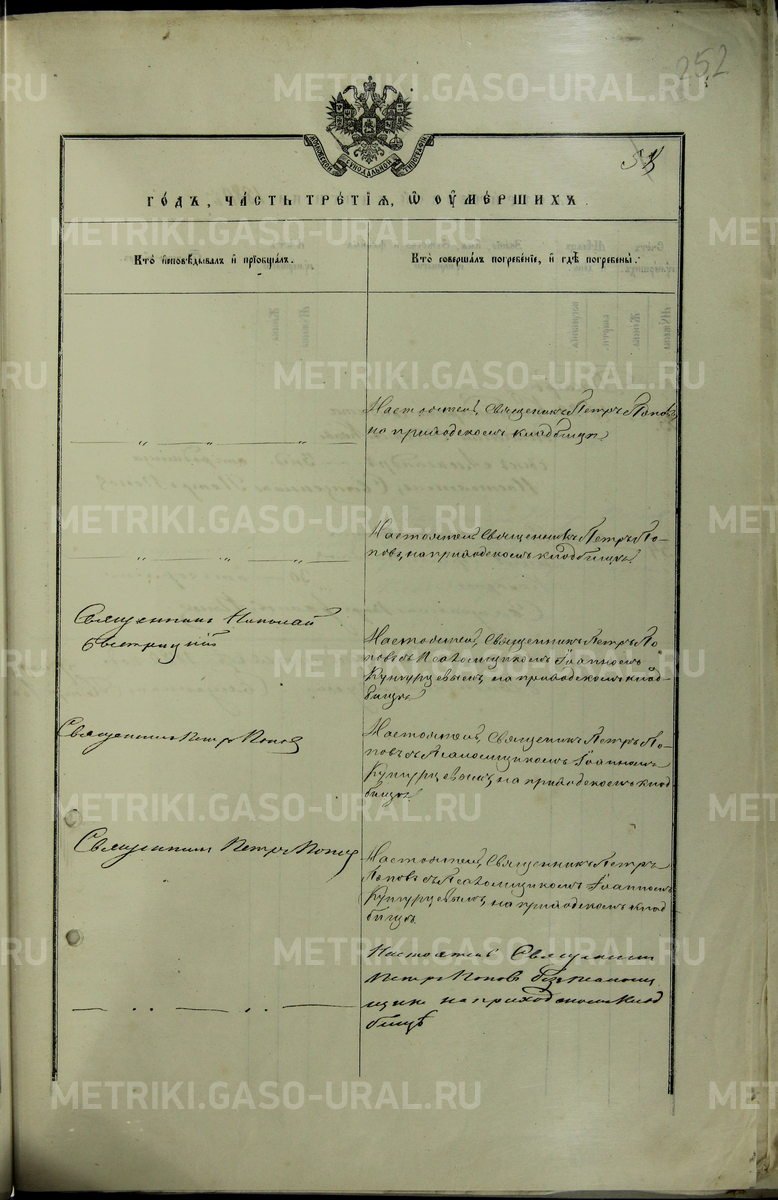 252
МОСКОВСКОЙ СУНОДАЛЬНОЙ ТИПОГРАФІИ
ГО́ДЪ, ЧА́СТЬ ТРЕ́ТІѦ, Ѡ҆ ОУ҆МЕ́РШИХЪ.
Кто̀ и҆сповѣ́дывалъ и҆ прїѡбща́лъ.
Кто̀ соверша́лъ погребе́нїе, и҆ гдѣ̀ погребены̀.
Настоятель, Священникъ Петръ Поповъ,
на приходскомъ кладбищѣ.
Настоятель, Священникъ Петръ По-
повъ, на приходскомъ кладбищѣ.
Священникъ Николай
Настоятель, Священникъ Петръ По-
повъ съ Псаломщикомъ Іоанномъ
Кунгурцевымъ, на приходскомъ клад-
бищѣ.
Священникъ Петръ Поповъ
Настоятель, Священникъ Петръ По-
повъ съ Псаломщикомъ Іоанномъ
Кунгурцевымъ, на приходскомъ клад-
бищѣ.
Священникъ Петръ Поповъ
Настоятель, Священникъ Петръ
Поповъ съ Псаломщикомъ Іоанномъ
Кунгурцевымъ, на приходскомъ клад-
бищѣ.
Настоятель Священникъ
Петръ Поповъ
на приходскомъ клад
бищѣ
METRIKI.GASO-URAL.RU